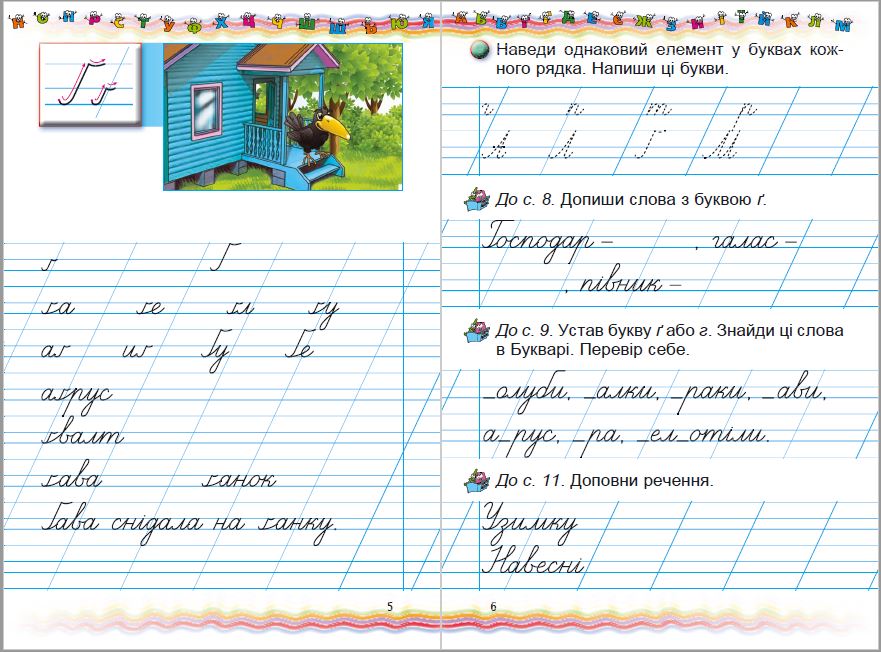 Н О П Р С Т У Ф Х Ц Ч Ш Щ Ь Ю Я
ґ Ґ
ґа ґе ґл ґу
аґ иґ Ґу Ґе
аґрус
ґвалт
ґава ґанок
Ґава снідала на ґанку.
5
А Б В Г Ґ Д Е Є Ж З И І Ї Й К Л М
Наведи однаковий елемент у буквах кож-
ного рядка. Напиши ці букви.
г п т р
А Л Г М
До с. 8. Допиши слова з буквою ґ.
Господар – , галас –
, півник –
До с. 9. Устав букву ґ або г. Знайди ці слова
в Букварі. Перевір себе.
_олуби, _алки, _раки, _ави,
а_рус, _ра, _ел_отіли.
До с. 11. Доповни речення.
Узимку
Навесні
6